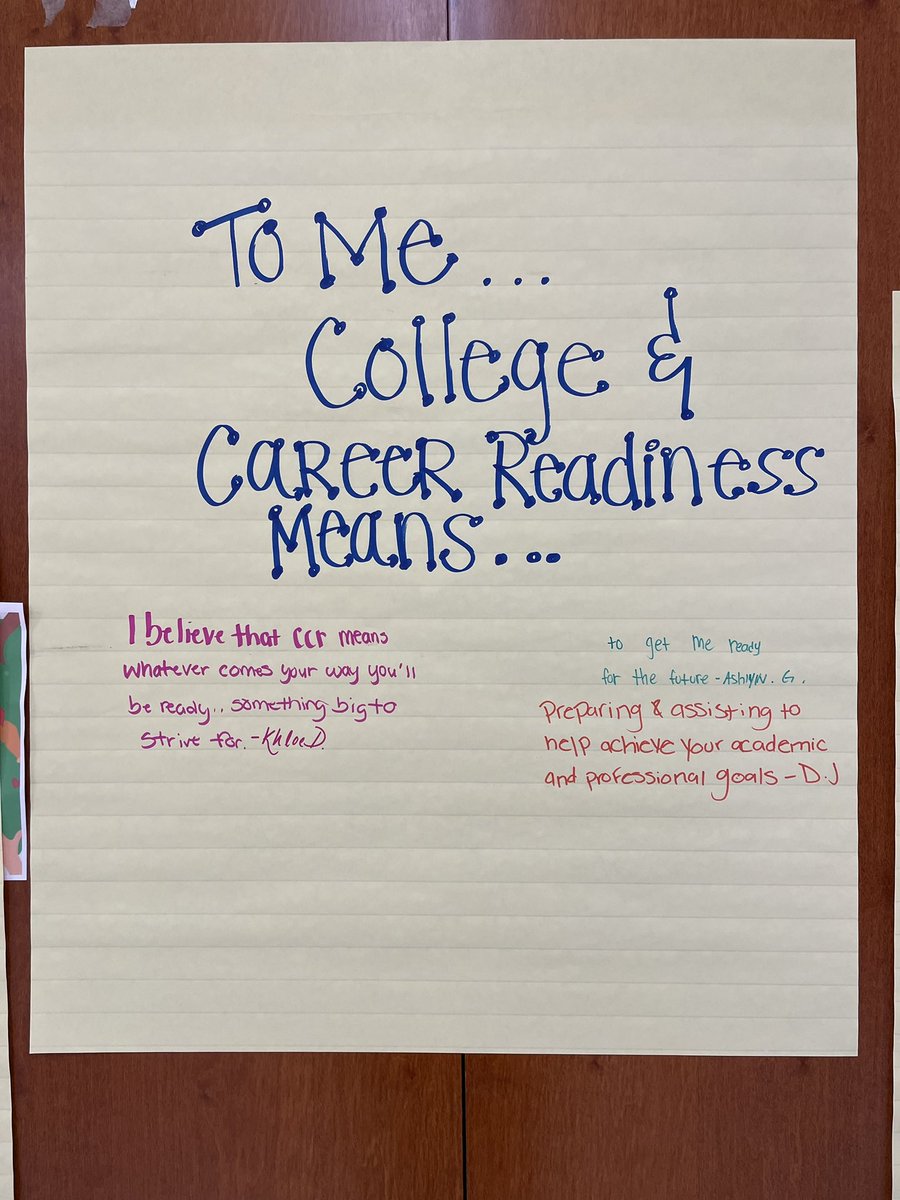 To Me...
College &
Career Readiness
Means...
I believe that ccr means
whatever comes your way you'll
be ready.. something big to
strive for. - Khloe D.
to get me ready
for the future - Ashlyn. G.
Preparing & assisting to
help achieve your academic
and professional goals - D.J